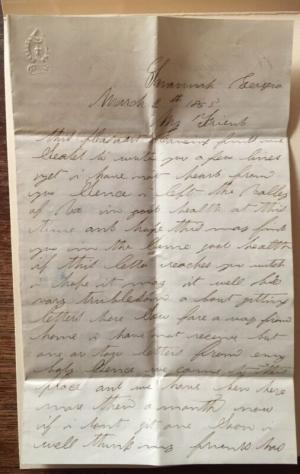 Savannah Georgia
March 2th 1865
My Friend
this pleasant evening finds me
seated to write you a few lines
yet i have not heard from
you sence i left the Valley
of Va im good health at this
time and hope this may find
you in the same good health
if this letter reaches you witch
i hope it may it well bee
vary trubblesom about gitting
letters here so fare a way from
home i have not receved but
one or two letters from eny
body sence we came to this
place and we have ben here
more then a month now
if i dont get one soon i
well think my friends has